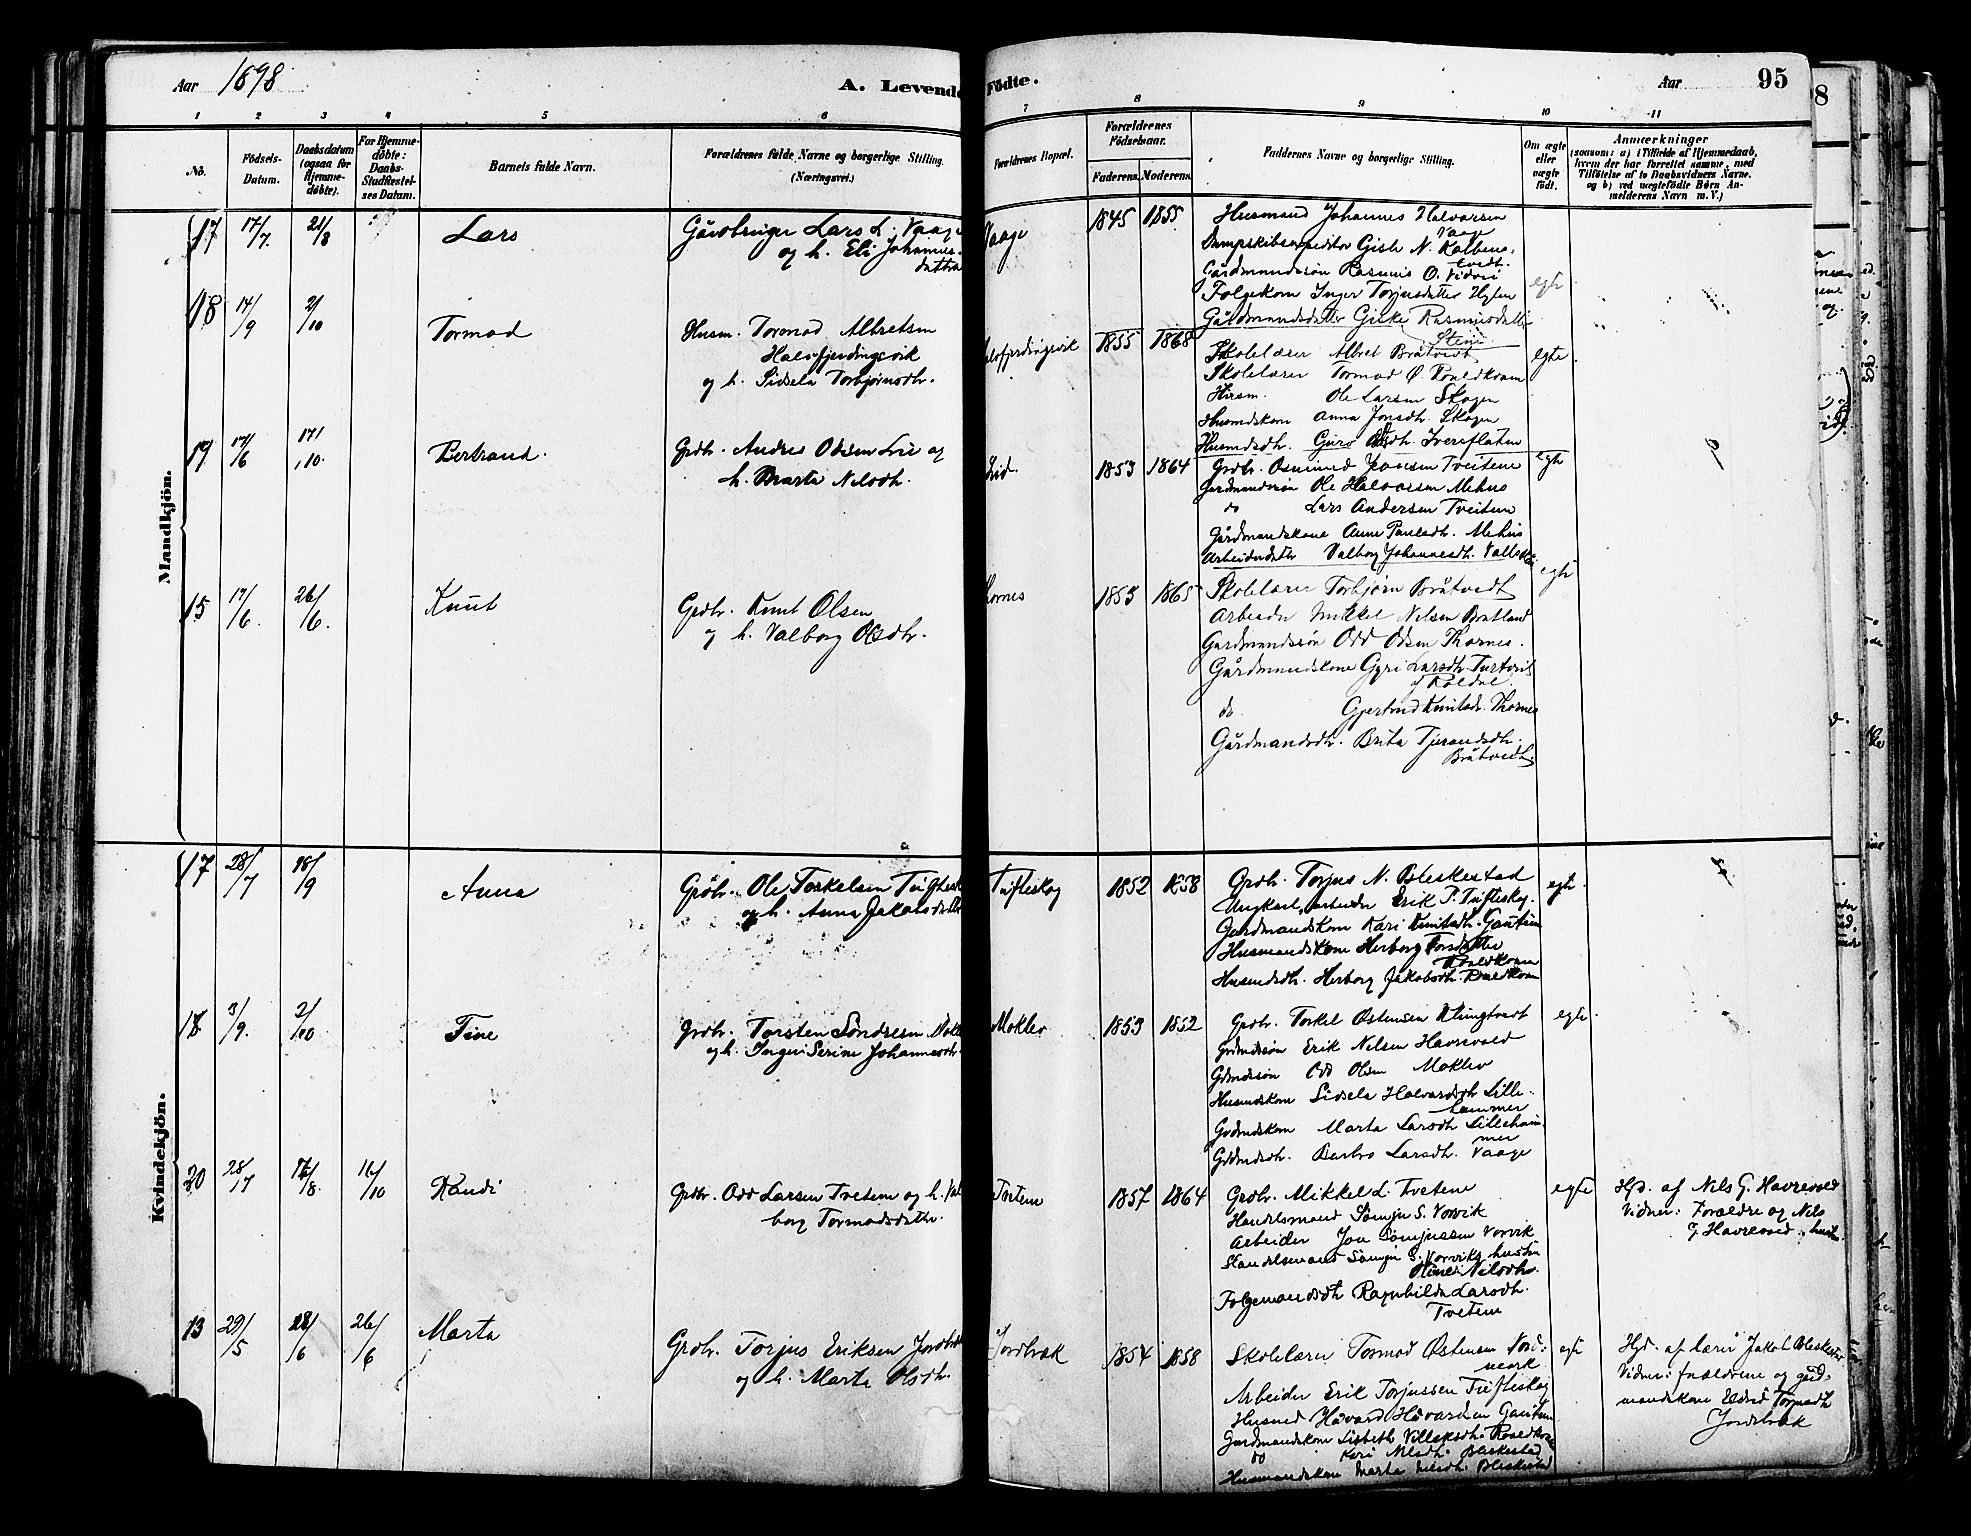 Aar 1898
A. Levende
Födte.
Aar
95
1 2 3 4 5 6 7 8 9 10 11
No.
Födsels-
Datum.
Daabsdatum
(ogsaa for
Hjemme-
döbte).
For Hjemme-
döbte:
Daabs-
Stadfæstel-
ses Datum.
Barnets fulde Navn.
Forældrenes fulde Navne og borgerlige Stilling.
(Næringsvei.)
Forældrenes Bopæl.
Forældrenes
Födselsaar.
Faderens. Moderens.
Faddernes Navne og borgerlige Stilling.
Om ægte
eller
uægte
födt.
Anmærkninger
(saasom: a) i Tilfælde af Hjemmedaab,
hvem der har forrettet samme, med
Tilföielse af to Daabsvidners Navne.
og b) ved uægtefödte Börn An-
melderens Navn m.V.)
Mandkjön.
17 17/7. 21/8 Lars
Gårdbruger Lars L. Vaage
og h. Eli Johannes-
datter
Vaage 1845 1855
Husmand Johannes Halvorsen
Vaage
Dampskibsexpeditør Gisle N. Kalbens-
tvedt.
Gårdmandssøn Rasmus O.
Folgekone Inger Torjusdatter Hylen
Gårdmandsdatter Rasmusdatter
egte
18 14/9 2/10 Tormod
Husm. Tormod Albretsen
Halvfjerdingsvik
og h. Sidsela Torbjørnsdtr.
Halvfjerdingsvik 1855 1868
Skolelærer Albret Bråtvedt
Skolelærer Tormod Ø. Roaldkvam
Husm. Ole Larsen Skogen
Husmdskone Anna Jonsdtr. Skogen
Husmdsdtr. Guro Iversflaten
egte
19 17/6 17/10. Bertrand.
Grdbr. Andres Oddsen Lie og
h. Marta Nilsdtr.
1853 1864
Grdbr. Osmund Tveitene
Gardmandssøn Ole Halvorsen Mehus
do Lars Andersen Tveitene
Gårdmandskone Anne Paulsdtr. Mehus
Arbeiderdatter Valborg Johannesdtr.
egte
15 17/6. 26/6. Knut
Grdbr. Knut Olsen
og h. Valborg Olsdtr.
Thornes 1853 1865
Skolelærer Torbjørn Bråtvedt
Arbeider Mikkel Nilsen Bratland
Gardmandssøn Odd Odsen Thornes.
Gårdmandskone Gyri Larsdtr.
f Røldal.
do. Gjertrud Knutsdtr. Thornes
Gårdmandsdtr. Brita Tjerandsdtr.
Bråtvedt
egte
Kvindekjön.
17 28/7 18/9 Anna
Grdbr. Ole Torkelsen Tufteskog
og h. Anna Jakobsdatter
Tufteskog 1852 1858
Grdbr. Torjus N. Bleskestad
Ungkarl, arbeider Erik T. Tufteskog.
Gardmandskone Kari Knutsdtr. Gautun
Husmandskone Herborg Torsdatter
Roaldkvam
Husmdsdtr. Herborg Jakobsdtr. Roaldkvam
egte.
18 3/9. 2/10 Tine
Grdbr. Torsten Søndresen Mokle
og h. Inger Serine Johannesdtr.
Moklev 1853 1852
Grdbr. Torkel Østensen Klungtvedt
Grdmdssøn Erik Nilsen Havrevold
Grdmdssøn Odd Olsen Moklev
Husmdskone Sidsela Halvorsdtr Lille-
hammer
Grdmdskone Marta Larsdtr Lilleham-
mer
Grdmdsdtr. Barbro Larsdtr. Vaage
egte.
20 28/7 /8. 16/10 Randi
Grdbr. Odd Larsen Tvetene og h. Val
borg Tormodsdattr.
Tvetene 1857 1864
Grdbr. Mikkel L. Tvetene
Handelsmand Sømju S. Vorvik
Arbeider Jon Sømjussen Vorvik
Handelsmand Sømju S. Vorviks hustru
Oline Nilsdtr.
Folgemandsdtr Ragnhilda Larsdtr.
Tvetene
egte
Hjd. af Nils G. Havrevold
Vidner: Forældre og Nils
G. Havrevold's hustru
13 29/5 /6 26/6 Marta
Grdbr. Torjus Eriksen Jordbræk
og h. Marta Olsdtr.
Jordbræk 1854 1858
Skolelærer Tormod Østensen Nord-
mork
Arbeider Erik Torjussen Tufteskog
Husmd Håvard Håvardsen Gautun
Gardmandskone Lisbeth Villeksdtr. Roaldkvam
do Kari Nilsdtr. Bleskestad
Husmandskone Marta Nilsdtr. Bleskestad
egte
Hjd. af lærer Jakob Bleskestad
Vidner: forældrene og gård-
mandskone Tormodsdtr
Jordbræk